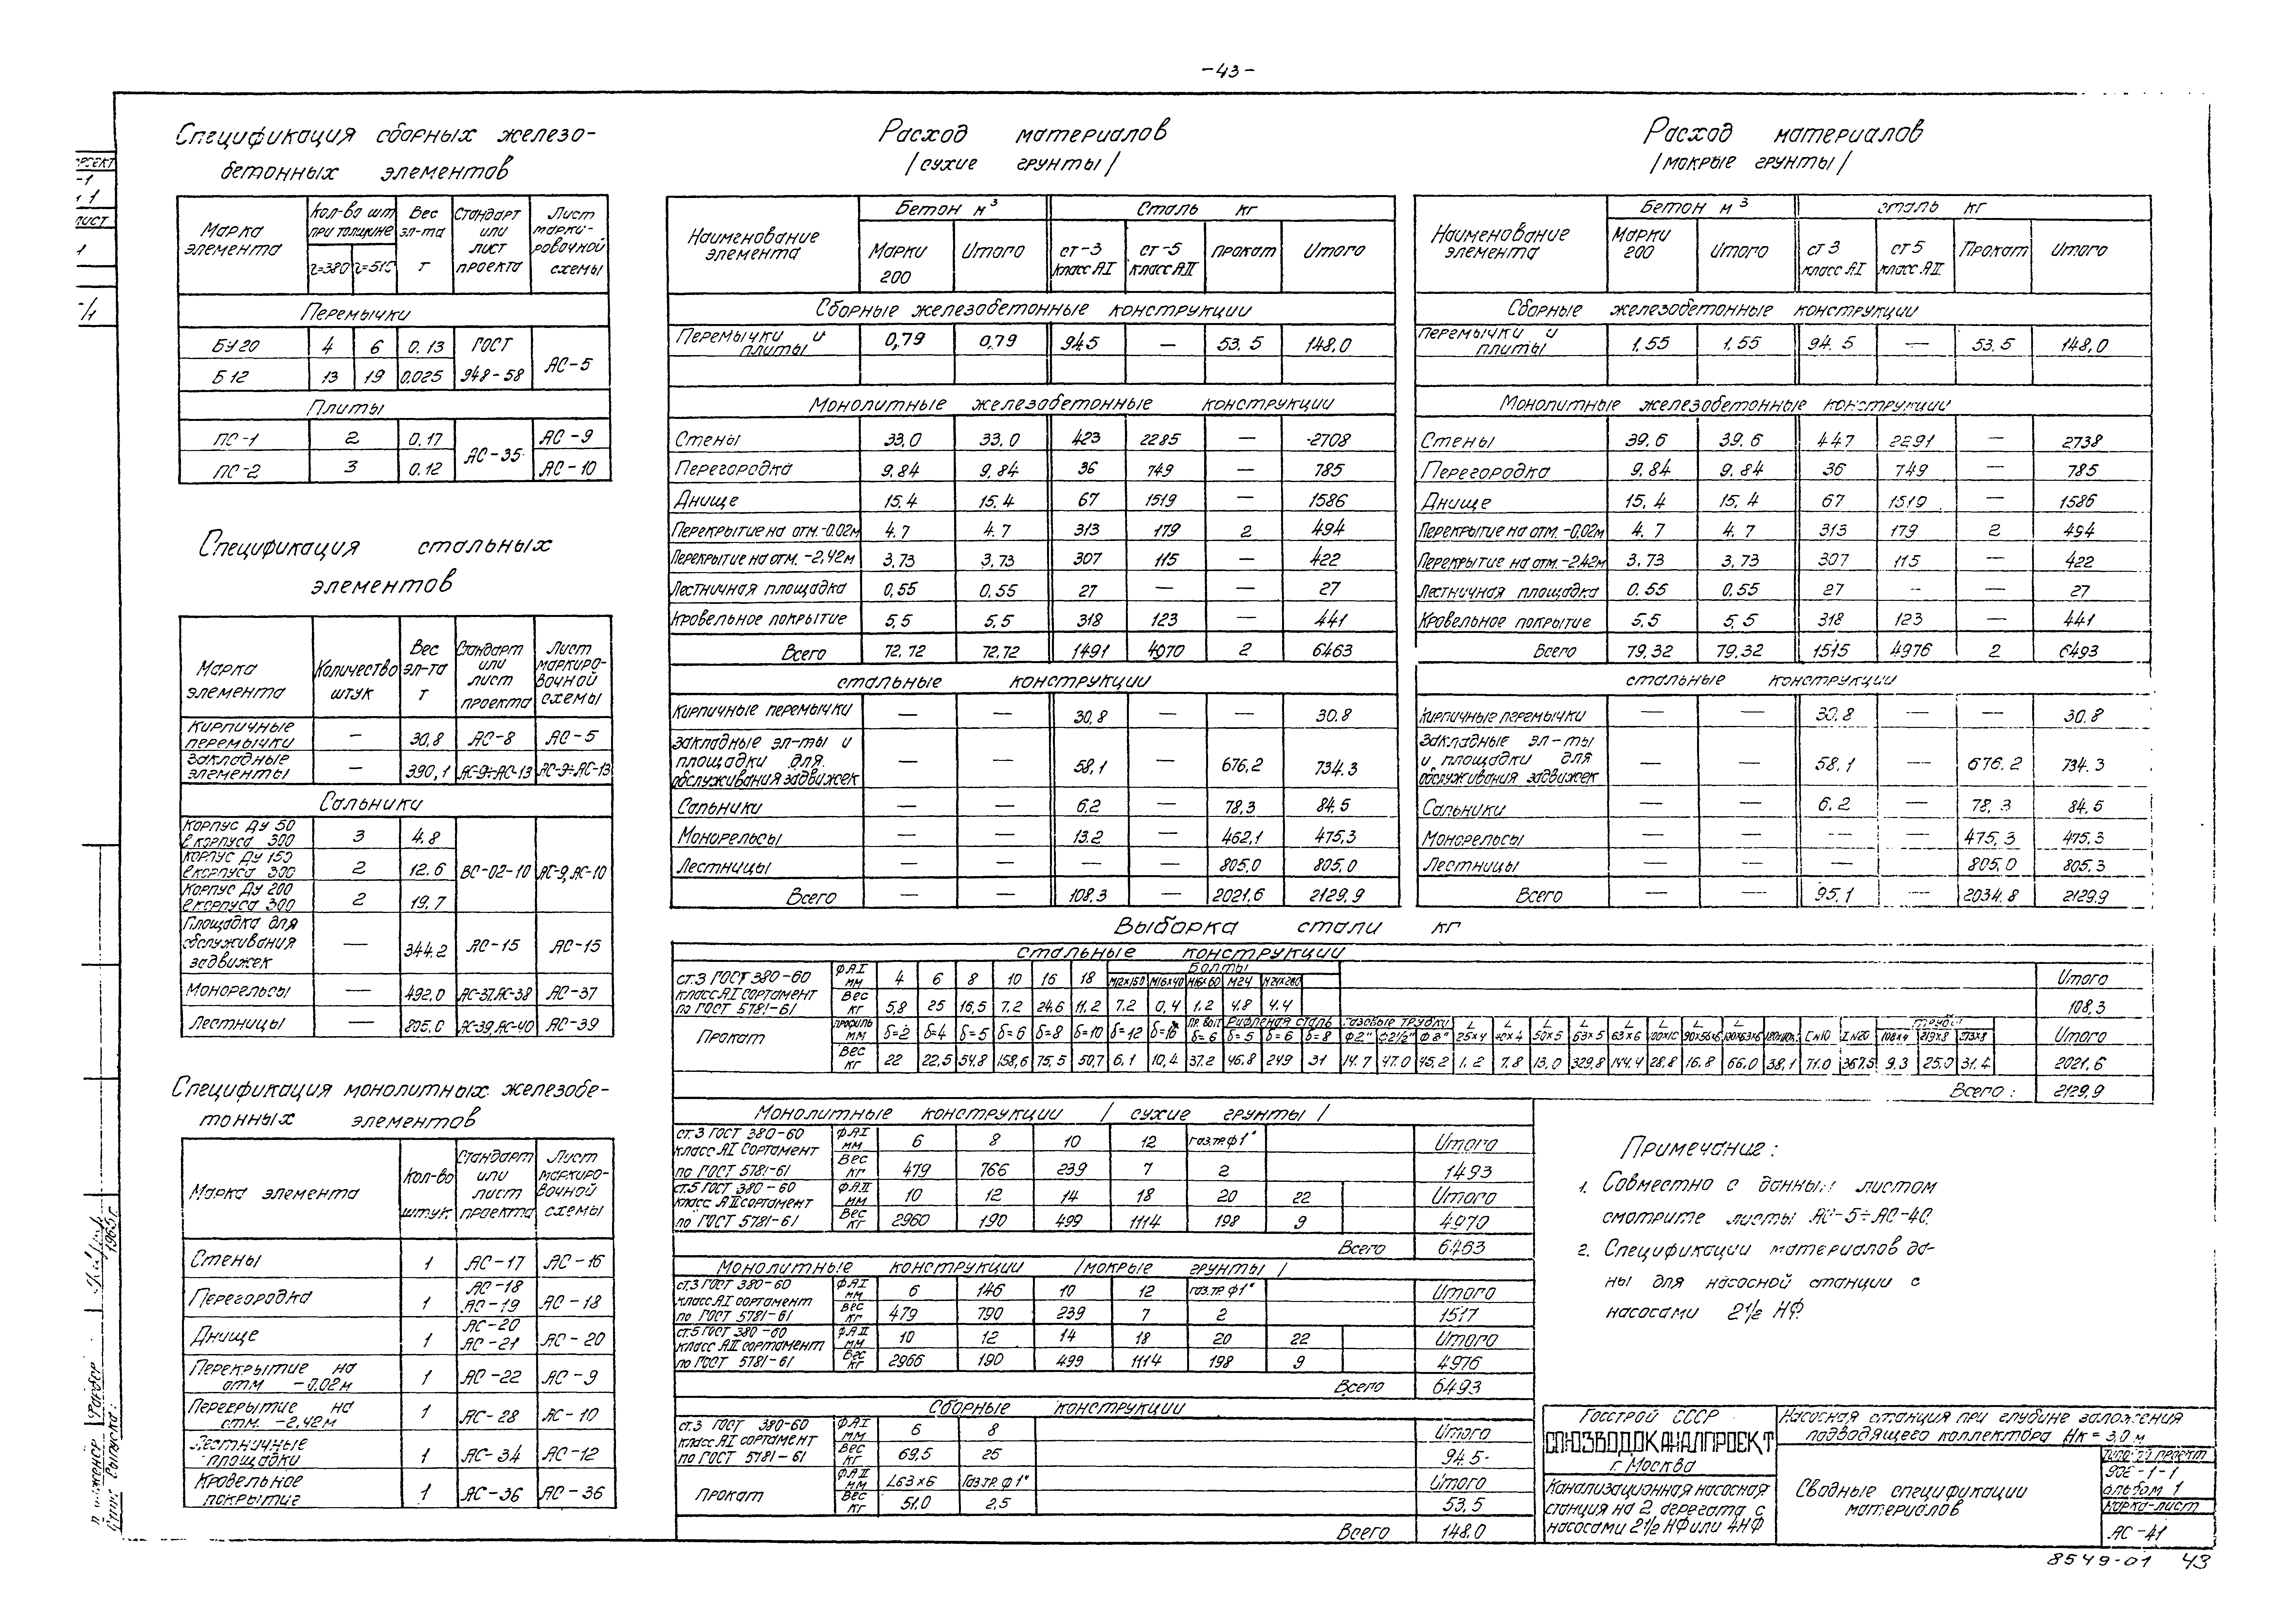 -43-
Спецификация сборных железо-
бетонных элементов
Марка элемента | Кол-во шт при толщине | Вес эл-та т | Стандарт или лист проекта | Лист маркировочной схемы
г=380 | г=510
Перемычки
БУ20 | 4 | 6 | 0.13 | ГОСТ 948-58 | АС-5
Б12 | 13 | 19 | 0.025
Плиты
ПС-1 | 2 | 0.17 | АС-35 | АС-9
ПС-2 | 3 | 0.12 | АС-10
Спецификация стальных
элементов
Марка элемента | Количество штук | Вес эл-та т | Стандарт или лист проекта | Лист маркировочной схемы
Кирпичные перемычки | — | 30,8 | АС-8 | АС-5
Закладные элементы | — | 390,1 | АС-9÷АС-13 | АС-9÷АС-13
Сальники
Корпус ДУ 50 ℓ корпуса 300 | 3 | 4.8 | ВС-02-10 | АС-9, АС-10
Корпус ДУ 150 ℓ корпуса 300 | 2 | 12.6
Корпус ДУ 200 ℓ корпуса 300 | 2 | 19.7
Площадка для обслуживания задвижек | — | 344.2 | АС-15 | АС-15
Монорельсы | — | 492.0 | АС-37, АС-38 | АС-37
Лестницы | — | 805.0 | АС-39, АС-40 | АС-39
Спецификация монолитных железобе-
тонных элементов
Марка элемента | Кол-во штук | Стандарт или лист проекта | Лист маркировочной схемы
Стены | 1 | АС-17 | АС-16
Перегородка | 1 | АС-18 АС-19 | АС-18
Днище | 1 | АС-20 АС-21 | АС-20
Перекрытие на отм -0.02м | 1 | АС-22 | АС-9
Перекрытие на отм. -2,42м | 1 | АС-28 | АС-10
Лестничные площадки | 1 | АС-34 | АС-12
Кровельное покрытие | 1 | АС-36 | АС-36
Расход материалов
/сухие грунты/
Наименование элемента | Бетон м³ | Сталь кг
Марки 200 | Итого | ст-3 класс АI | ст-5 класс АII | Прокат | Итого
Сборные железобетонные конструкции
Перемычки и плиты | 0,79 | 0,79 | 94.5 | — | 53.5 | 148,0
Монолитные железобетонные конструкции
Стены | 33.0 | 33.0 | 423 | 2285 | — | 2708
Перегородка | 9.84 | 9,84 | 36 | 749 | — | 785
Днище | 15.4 | 15.4 | 67 | 1519 | — | 1586
Перекрытие на отм.-0.02м | 4.7 | 4.7 | 313 | 179 | 2 | 494
Перекрытие на отм. -2,42м | 3,73 | 3,73 | 307 | 115 | — | 422
Лестничная площадка | 0,55 | 0,55 | 27 | — | — | 27
Кровельное покрытие | 5,5 | 5,5 | 318 | 123 | — | 441
Всего | 72.72 | 72.72 | 1491 | 4970 | 2 | 6463
стальные конструкции
Кирпичные перемычки | — | — | 30,8 | — | — | 30.8
Закладные эл-ты и площадки для обслуживания задвижек | — | — | 58,1 | — | 676,2 | 734.3
Сальники | — | — | 6.2 | — | 78,3 | 84.5
Монорельсы | — | — | 13.2 | — | 462,1 | 475,3
Лестницы | — | — | — | — | 805.0 | 805,0
Всего | — | — | 108,3 | — | 2021,6 | 2129,9
Расход материалов
/мокрые грунты/
Наименование элемента | Бетон м³ | сталь кг
Марки 200 | Итого | ст 3 класс АI | ст 5 класс АII | Прокат | Итого
Сборные железобетонные конструкции
Перемычки и плиты | 1,55 | 1,55 | 94.5 | — | 53.5 | 148,0
Монолитные железобетонные конструкции
Стены | 39.6 | 39.6 | 447 | 2291 | — | 2738
Перегородка | 9.84 | 9.84 | 36 | 749 | — | 785
Днище | 15,4 | 15,4 | 67 | 1519 | — | 1586
Перекрытие на отм.-0.02м | 4.7 | 4.7 | 313 | 179 | 2 | 494
Перекрытие на отм.-2.42м | 3.73 | 3,73 | 307 | 115 | — | 422
Лестничная площадка | 0.55 | 0.55 | 27 | - | — | 27
Кровельное покрытие | 5.5 | 5.5 | 318 | 123 | — | 441
Всего | 79.32 | 79.32 | 1515 | 4976 | 2 | 6493
стальные конструкции
Кирпичные перемычки | — | — | 30.8 | — | — | 30.8
Закладные эл-ты и площадки для обслуживания задвижек | — | — | 58.1 | — | 676.2 | 734.3
Сальники | — | — | 6.2 | — | 78.3 | 84.5
Монорельсы | — | — | — | — | 475,3 | 475.3
Лестницы | — | — | — | — | 805,0 | 805.3
Всего | — | — | 95.1 | — | 2034.8 | 2129.9
Выборка стали кг
стальные конструкции
ст.3 ГОСТ 380-60 класс АI сортамент по ГОСТ 5781-61 | ФАI мм | 4 | 6 | 8 | 10 | 16 | 18 | Болты | М12х150 | М16х40 | М16х60 | М24 | М24х280 | Итого
Вес кг | 5,8 | 25 | 16,5 | 7.2 | 24.6 | 11.2 | 7.2 | 0,4 | 1.2 | 4.8 | 4.4 | 108,3
Прокат | профиль мм | δ=2 | δ=4 | δ=5 | δ=6 | δ=8 | δ=10 | δ=12 | δ=16 | δ=6 | Рифленая сталь | δ=5 | δ=6 | δ=8 | Газовые трубки | Ф2" | Ф2½" | Ф3" | L 25х4 | L 40х4 | L 50х5 | L 63х5 | L 63х6 | [№10 | I №20 | Трубы | 108х4 | 219х8 | 273х8 | Итого
Вес кг | 22 | 22,5 | 54,8 | 158,6 | 75,5 | 50,7 | 6.1 | 10,4 | 37.2 | 46.8 | 249 | 31 | 14.7 | 47.0 | 45.2 | 1.2 | 7.8 | 13,0 | 329,8 | 144,4 | 28.8 | 16.8 | 66.0 | 38,1 | 71.0 | 367.5 | 9.3 | 25.0 | 31.4 | 2021,6
Всего: | 2129,9
Монолитные конструкции /сухие грунты/
ст.3 ГОСТ 380-60 класс АI сортамент по ГОСТ 5781-61 | ФАI мм | 6 | 8 | 10 | 12 | газ.тр.ф1" | Итого
Вес кг | 479 | 766 | 239 | 7 | 2 | 1493
ст.5 ГОСТ 380-60 класс АII сортамент по ГОСТ 5781-61 | ФАII мм | 10 | 12 | 14 | 18 | 20 | 22 | Итого
Вес кг | 2960 | 190 | 499 | 1114 | 198 | 9 | 4970
Всего | 6463
Монолитные конструкции /мокрые грунты/
ст.3 ГОСТ 380-60 класс АI сортамент по ГОСТ 5781-61 | ФАI мм | 6 | 146 | 10 | 12 | газ.тр.ф1" | Итого
Вес кг | 479 | 790 | 239 | 7 | 2 | 1517
ст.5 ГОСТ 380-60 класс АII сортамент по ГОСТ 5781-61 | ФАII мм | 10 | 12 | 14 | 18 | 20 | 22 | Итого
Вес кг | 2966 | 190 | 499 | 1114 | 198 | 9 | 4976
Всего | 6493
Сборные конструкции
ст.3 ГОСТ 380-60 класс АI сортамент по ГОСТ 5781-61 | ФАI мм | 6 | 8 | Итого
Вес кг | 69,5 | 25 | 94.5
Прокат | ФАII мм | L63х6 | Газ.тр. ф1" | Итого
Вес кг | 51.0 | 2,5 | 53,5
Всего | 148.0
Примечание:
1. Совместно с данным листом
смотрите листы АС-5÷АС-40.
2. Спецификации материалов да-
ны для насосной станции с
насосами 2½ НФ.
Госстрой СССР
СОЮЗВОДОКАНАЛПРОЕКТ
г. Москва
Канализационная насосная
станция на 2 агрегата с
насосами 2½ НФ или 4НФ
Насосная станция при глубине заложения
подводящего коллектора Нк = 3,0 м
Сводные спецификации
материалов
Типовой проект
902-1-1
альбом 1
марка-лист
АС-41
8549-01 43
1965г.